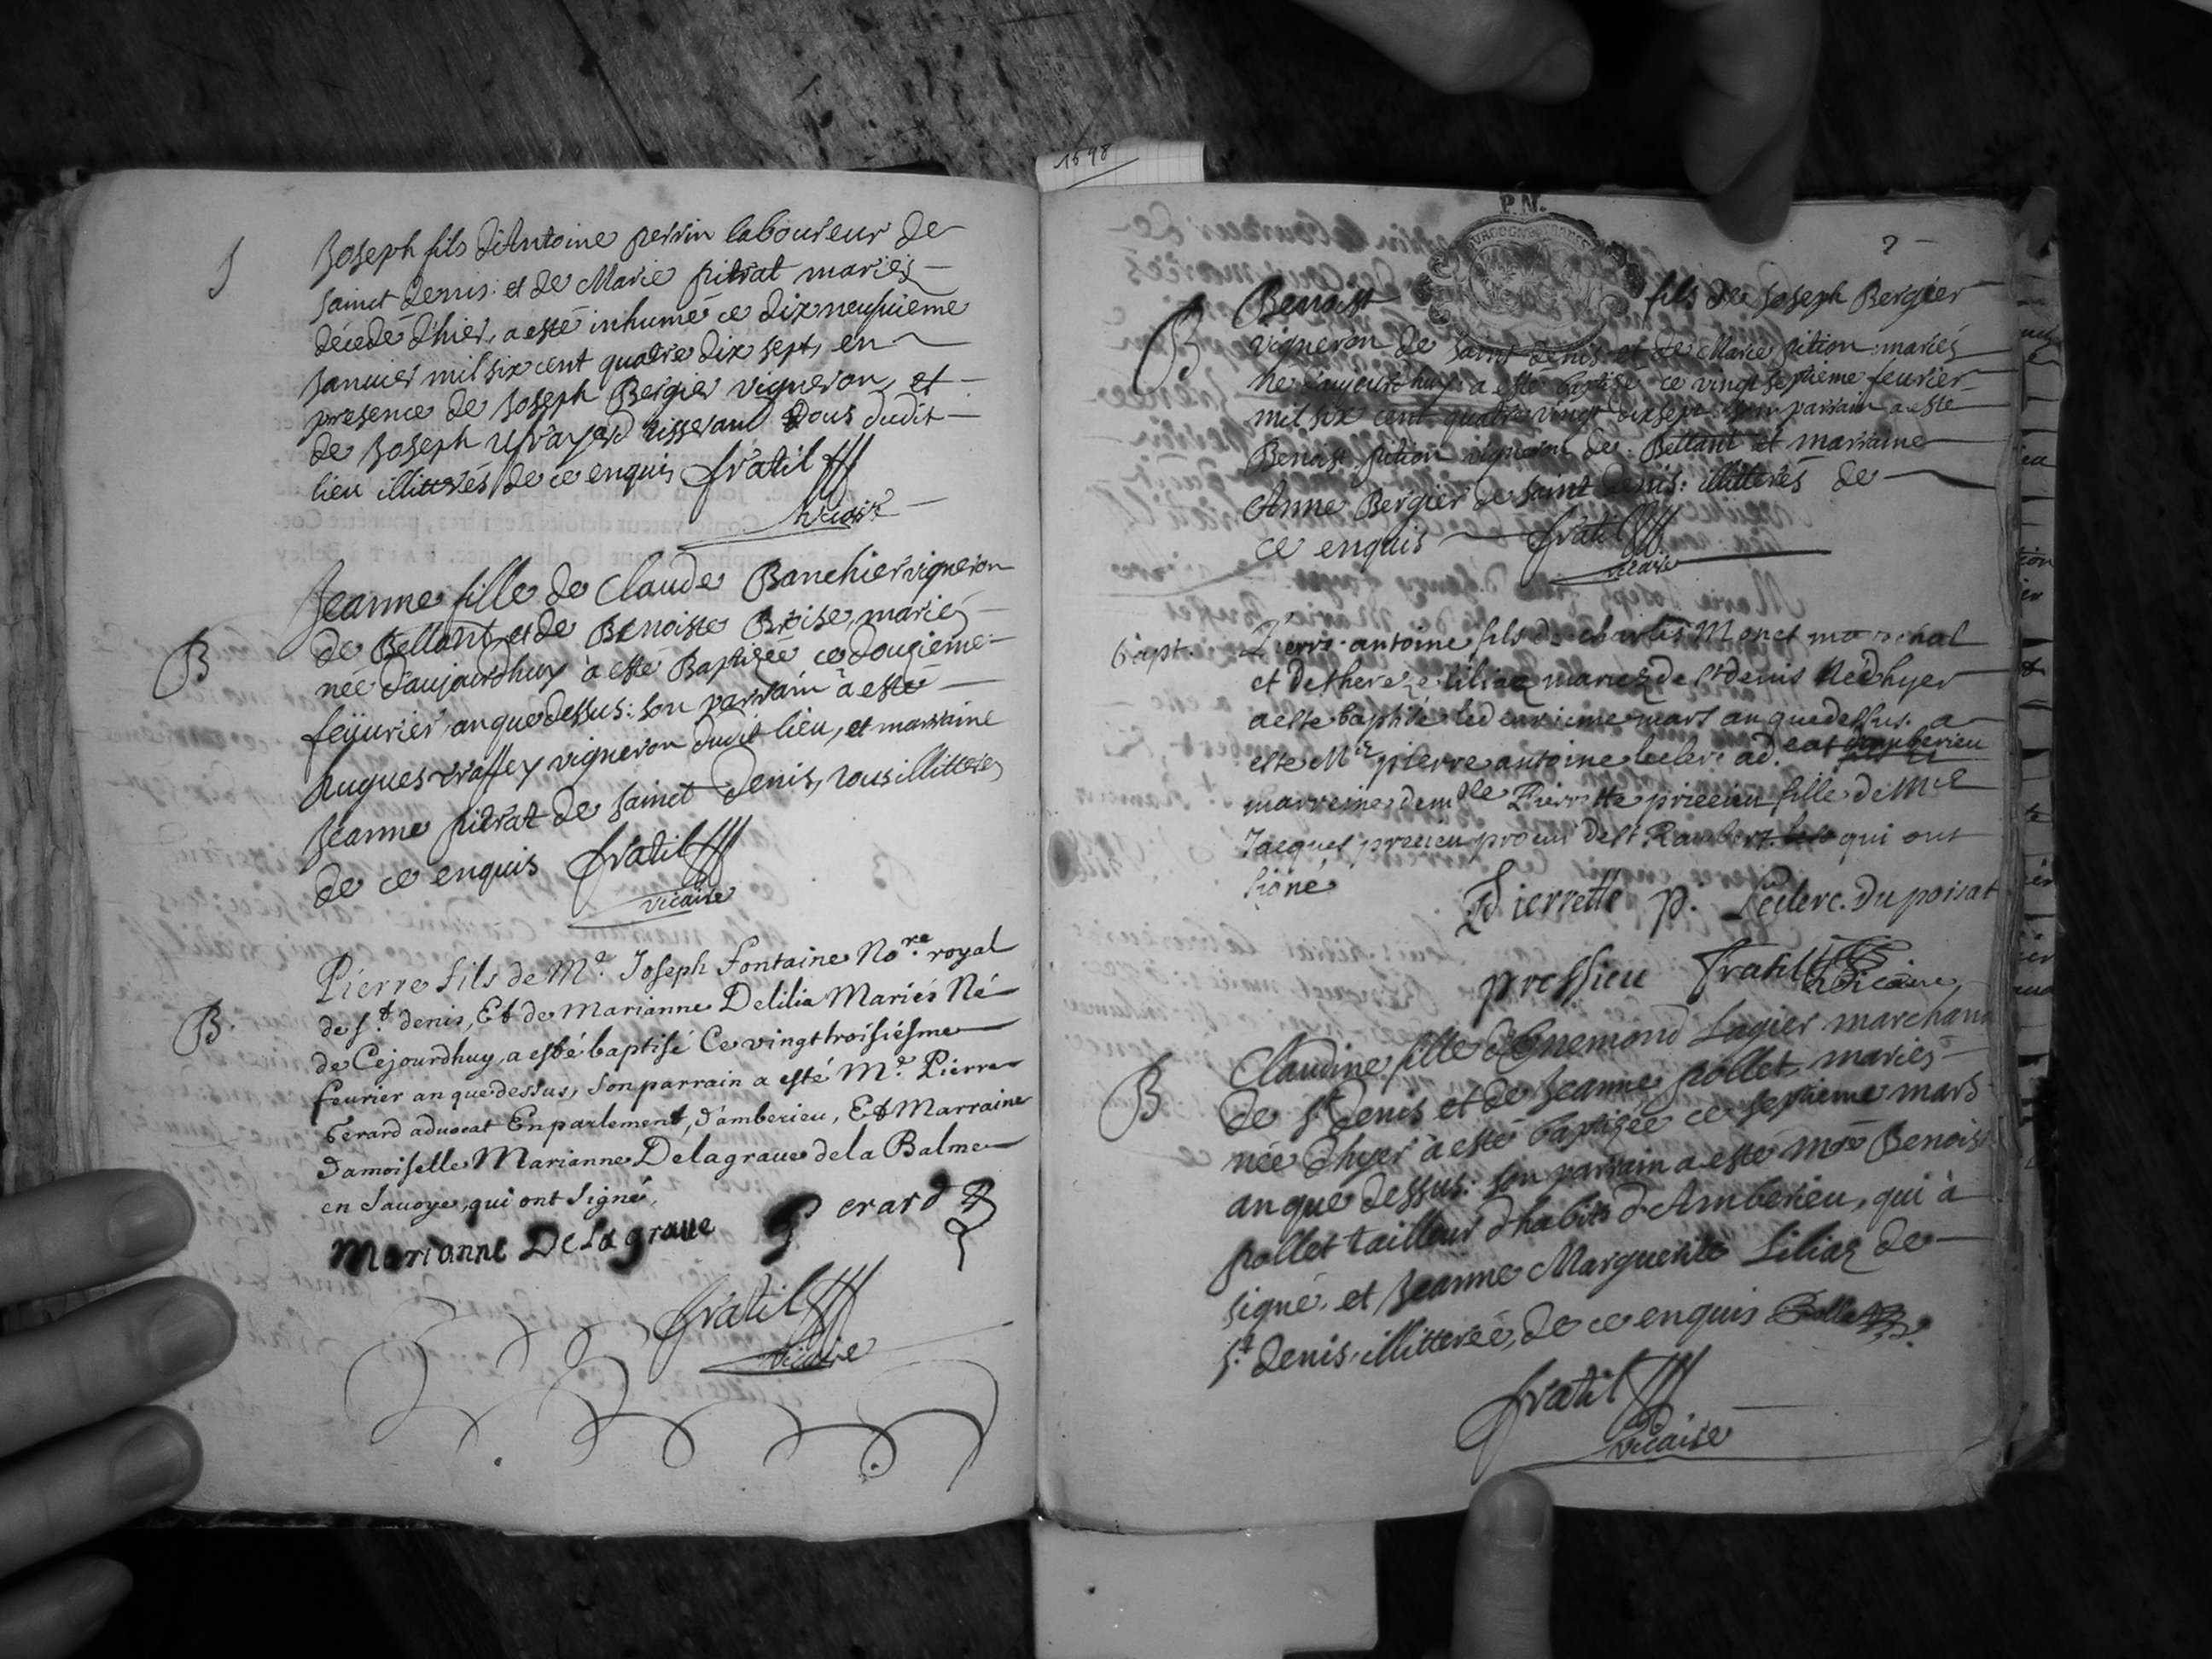 1698
S
Joseph fils d'Antoine perrin laboureur de
sainct denis: et de Marie pitrat mariés
décédé d'hier, a esté inhumé ce dixneufuieme
Januier mil six cent quatre dix sept, en
presence de Joseph Bergier vigneron, et
de Joseph tisserand tous dudit
lieu illitterés de ce enquis fratil
vicaire
B
Jeanne fille de Claude Banchier vigneron
de Bellant et de Benoiste Broise, mariés
née d'aujourdhuy a esté Baptizée ce douzieme
feuurier an que dessus: son parrain a esté
hugues traffey vigneron dudit lieu, et marraine
Jeanne pitrat de sainct Denis, tous illitterés
de ce enquis fratil
vicaire
B.
Pierre fils de Me. Joseph Fontaine No.re royal
de St. denis, Et de Marianne Delilia Mariés Né
de Cejourdhuy, a esté baptisé Ce vingttroisiésme
feurier an que dessus, son parrain a esté Me. Pierre
Gerard aduocat En parlement, d'amberieu, Et Marraine
damoiselle Marianne Delagraue de la Balme
en Sauoye, qui ont signé,
Marianne Delagraue Gerard
fratil
vicaire
P.N.
?
B
Benoist fils de Joseph Bergier
vigneron de saint denis: et de Marie pition mariés
né aujourdhuy: a esté baptisé ce vingt septieme feurier
mil six cent quatre vingt dix sept son parrain a esté
Benoist pition vigneron de Bettant et marraine
Anne Bergier de saint denis: illitterés de
ce enquis fratil
vicaire
bapt.
Pierre antoine fils de charles Monet marechal
et de therese liliaz mariez de st denis Né d'hyer
a este baptisé le deuxieme mars an que dessus. a
este Mre pierre antoine leclerc ad.cat d'amberieu
marreine demlle Pierrette fille de Mre
Jacques procur de st Rambert qui ont
signé
Pierrette p. Leclerc. Du poisat
pressieu fratil
vicaire
B
Claudine fille d'Enemond Lagier marchand
de St Denis et de Jeanne pollet, mariés
née d'hyer à esté baptizée ce septieme mars
an que dessus: son parrain a esté mre Benoist
pollet tailleur d'habits d'Amberieu, qui à
signé, et Jeanne Marguerite Liliaz de
St. denis illitterée, de ce enquis Pollet
fratil
vicaire